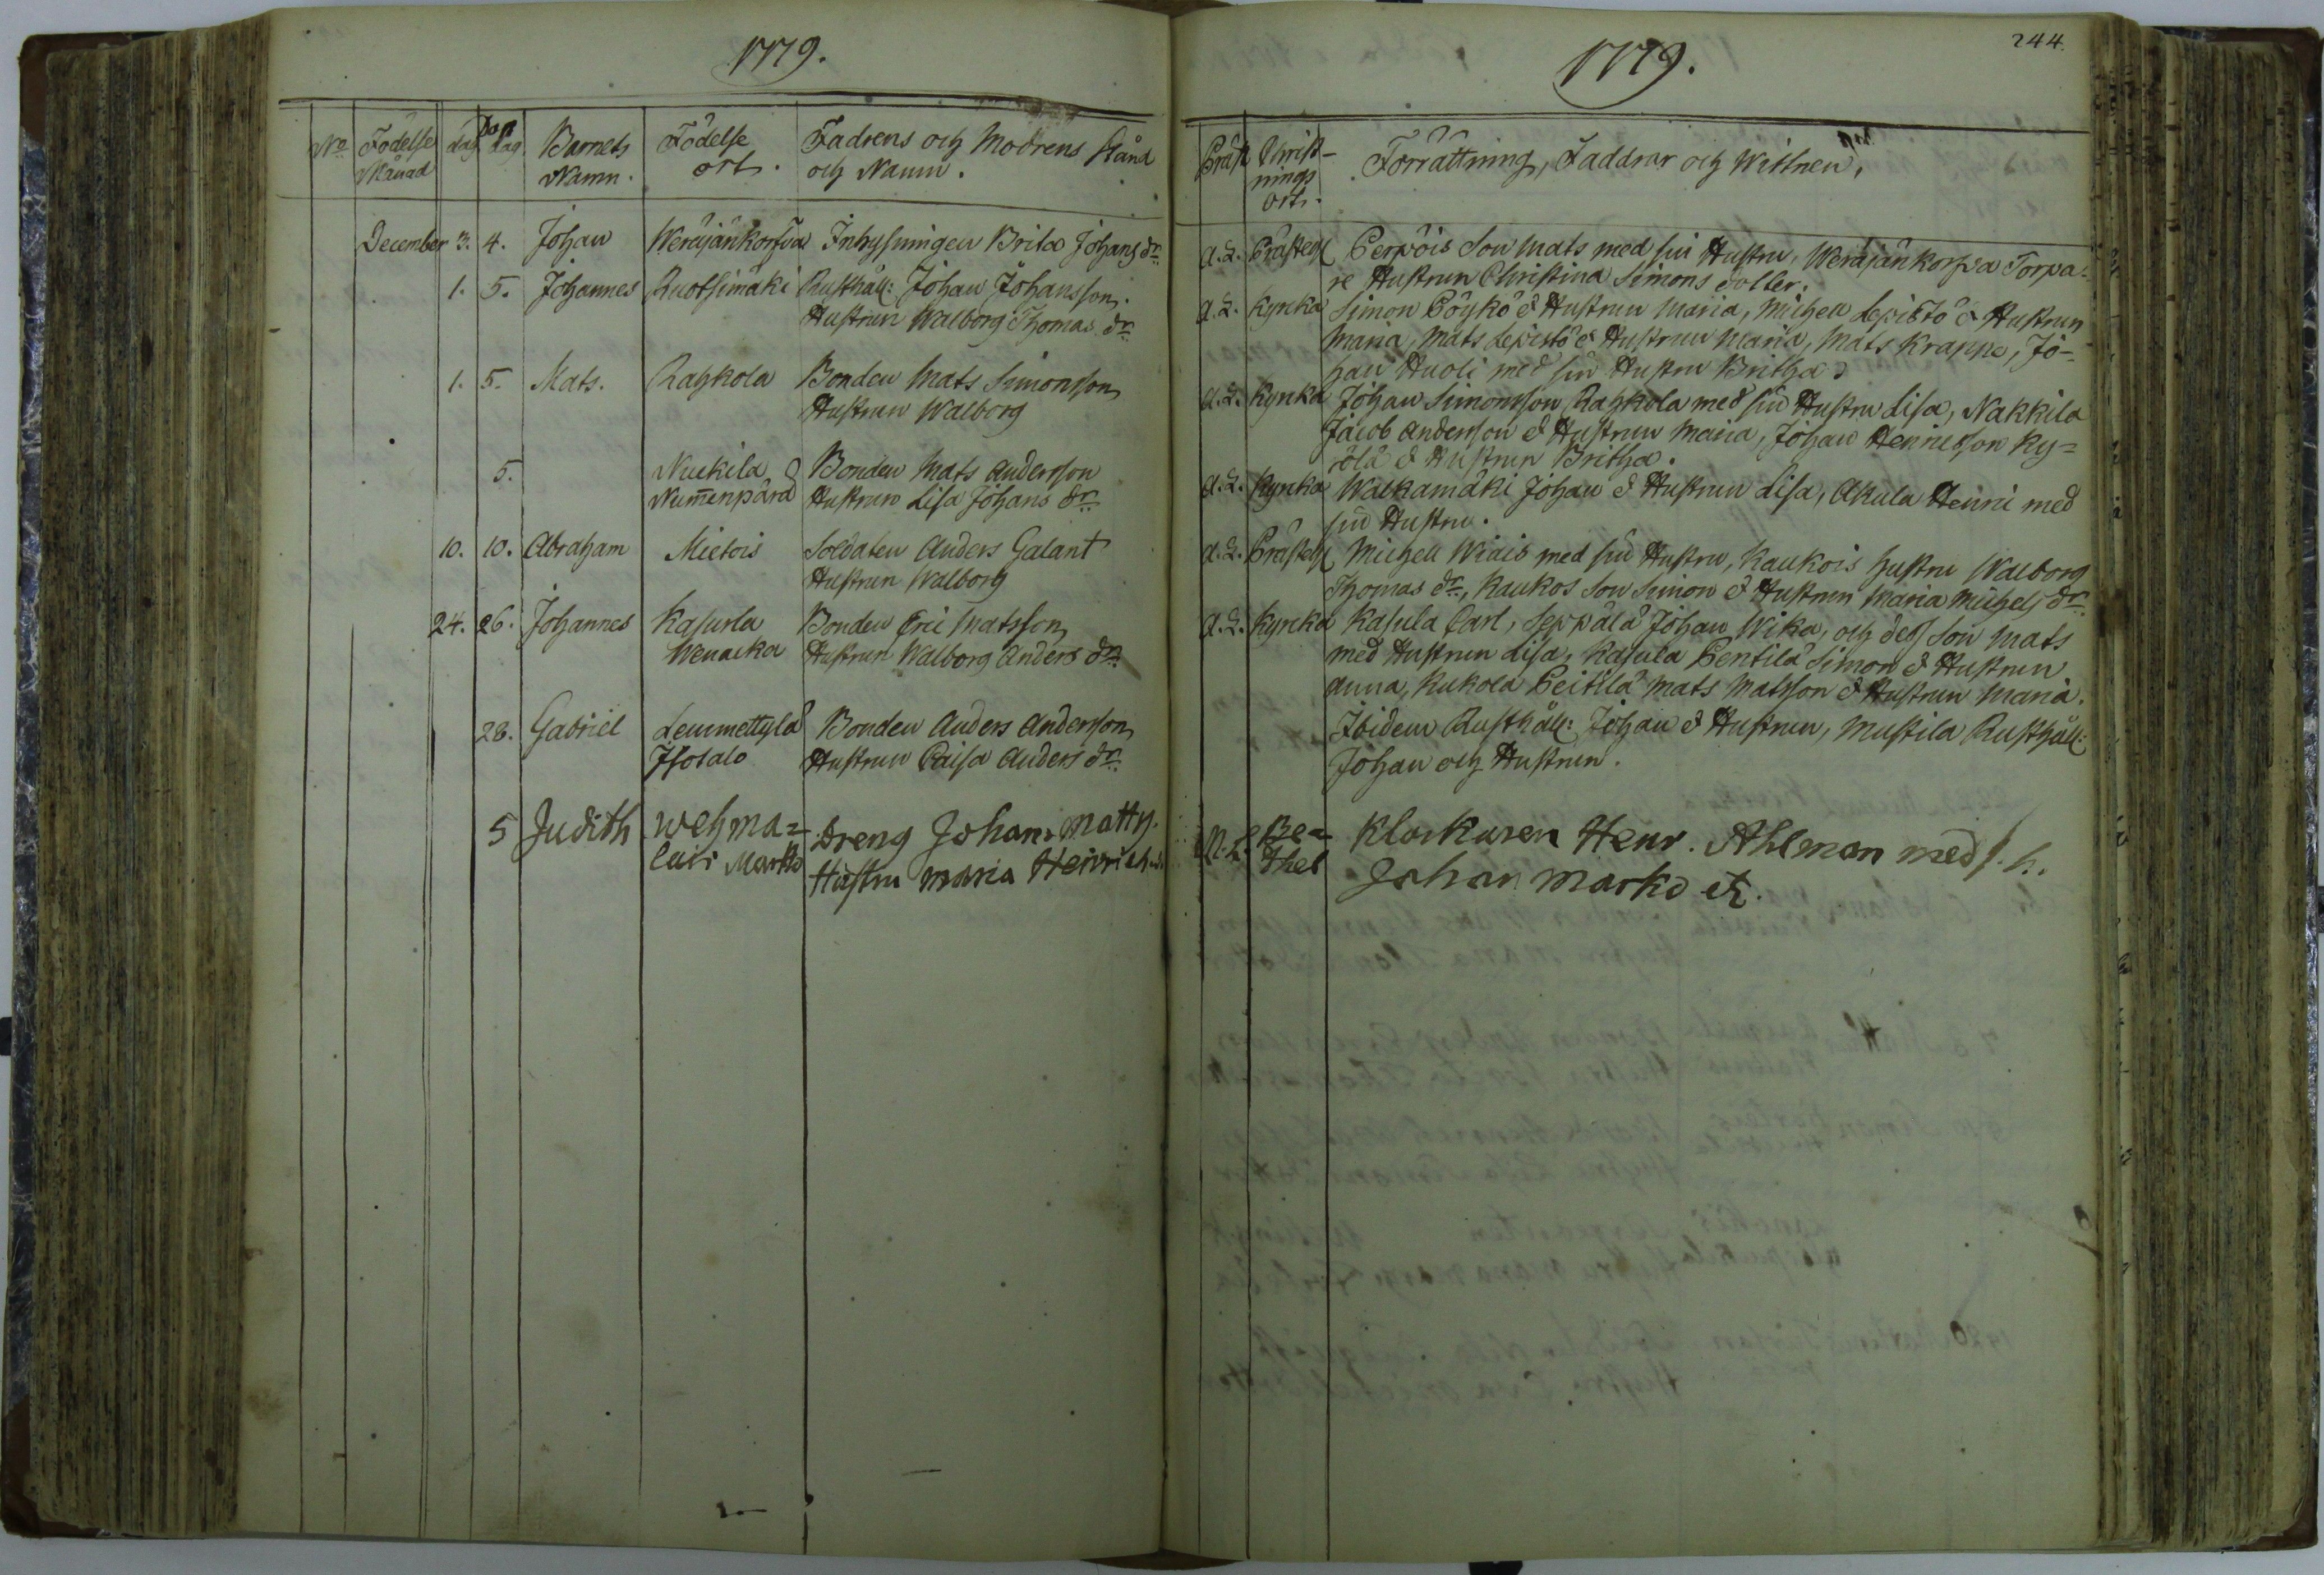 1779.
No Födelse Månad dag Dop dag Barnets Namn. Födelse ort. Fadrens och Modrens stånd och Namn.
December 3. 4. Johan Weräjänkorfva Inhysningen Brita Johans dr
1. 5. Johannes Ruotsimäki Rusthåll: Johan Johansson.
Hustrun Walborg Thomas dr
1. 5. Mats. Rahkola Bonden Mats Simonsson
Hustrun Walborg
5. Nuckila Bonden Mats Andersson
Nummenpära Hustrun Lisa Johans dr
10. 10. Abraham Mietois Soldaten Anders Galant
Hustrun Walborg
24. 26. Johannes Kasurla Bonden Eric Matsson
Hustrun Walborg Anders dr
28. Gabriel Lemmettylä Bonden Anders Andersson
Isotalo Hustrun Caisa Anders dr
5 Judith wehma= Dreng Johan Matts.
Marko Hustru Maria Henrichs
1779.
244.
Präst Christ-
nings
ort. Förrättning, Faddrar och Wittnen,
A. L. Prästeg Perpöis Son Mats med sin Hustru, Weräjänkorpa Torpa=
re Hustrun Christina Simons dotter.
A. L. Kyrka Simon Pöykö & Hustrun Maria, Michell Lepistö & Hustrun
Maria, Mats Lepistö & Hustrun Maria, Mats Krappe, Jo-
han Huoli med sin Hustru Britha
A. L. Kyrka Johan Simonsson Rahkola med sin Hustru Lisa, Nakkila
Jacob Andersson & Hustrun Maria, Johan Henricsson Ky=
rölä & Hustrun Britha.
A. L. Kyrka Walkamäki Johan & Hustrun Lisa, Akula Henric med
sin Hustru.
A. L. Prästeg Michell Widis med sin Hustru, Kaukois hustru Walborg
Thomas dr, Kaukos Son Simon & Hustrun Maria Michels dr
A. L. Kyrka Kasula Carl, Seppälä Johan Wika, och dess son Mats
med Hustrun Lisa, Kasula Pentilä Simon & Hustrun
Anna, Kukola Peitilä Mats Matsson & Hustrun Maria.
Ibidem Rusthåll: Johan & Hustrun, Mustila Rusthåll:
Johan och Hustrun.
Be=
thel Klockaren Henr. Ahlman med s. h.
Johan Marko etc.